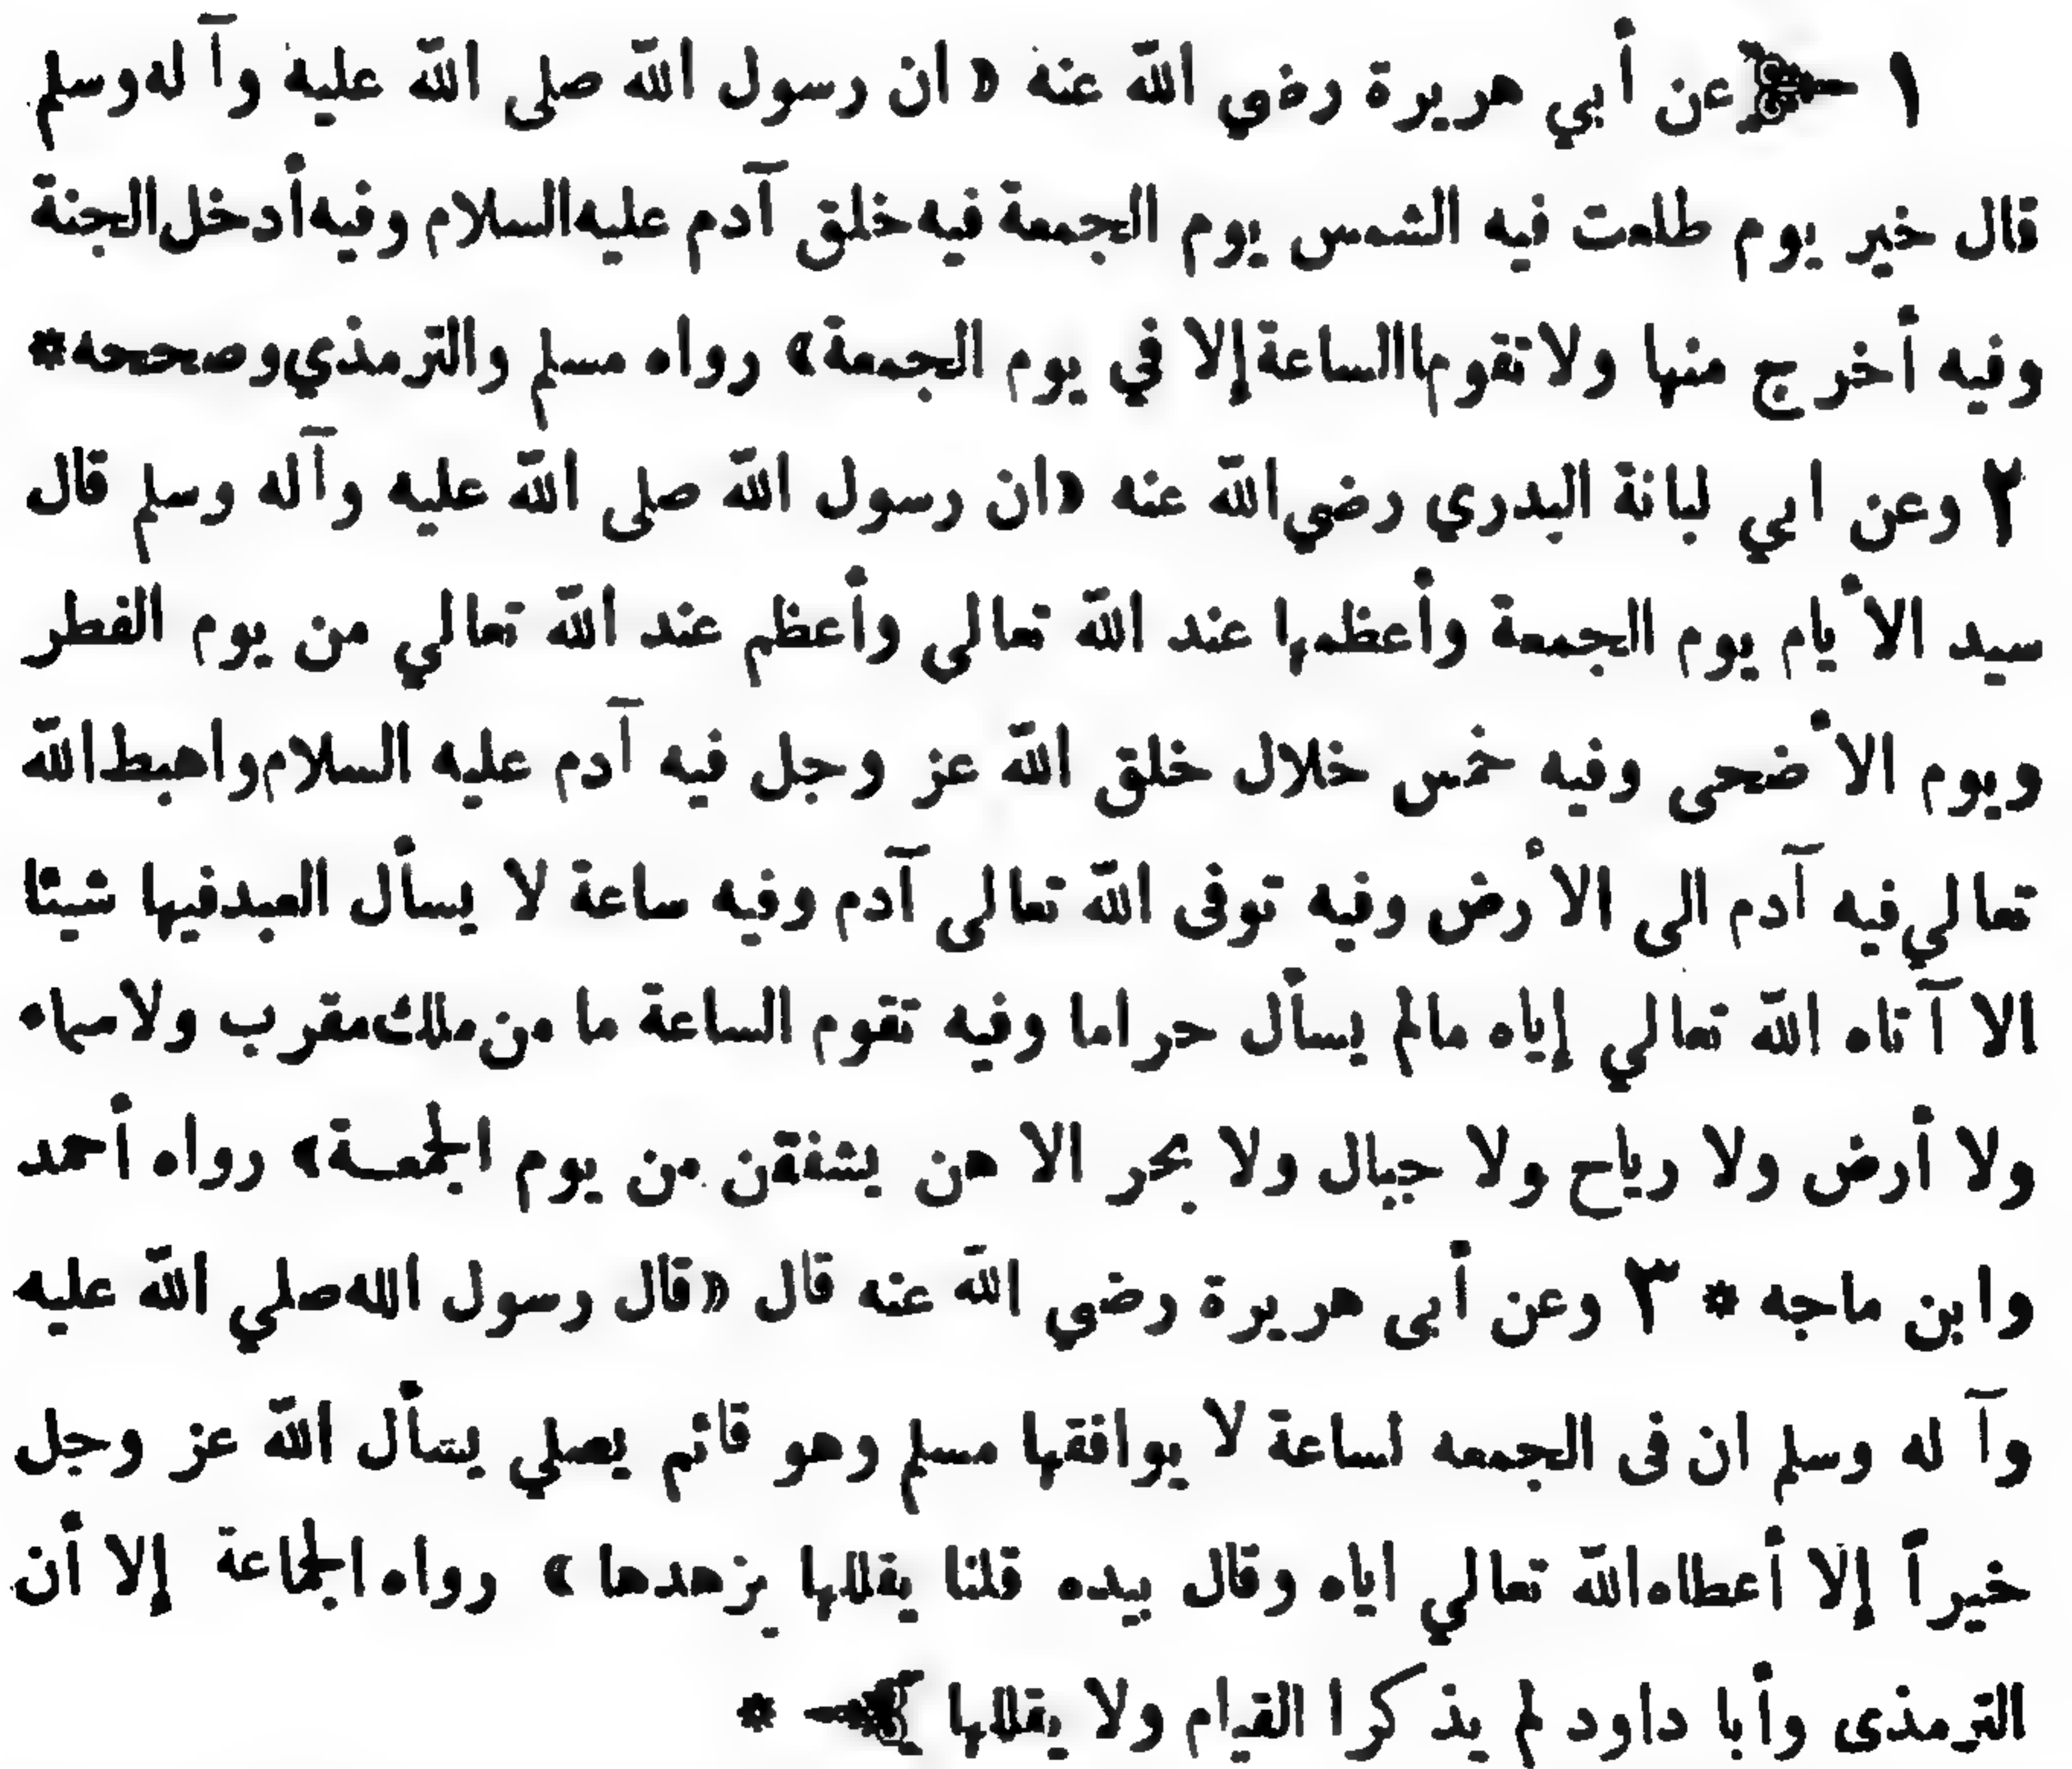 ١ ﴿عن أبي هريرة رضي الله عنه «ان رسول الله صلى الله عليه وآله وسلم
قال خير يوم طلعت فيه الشمس يوم الجمعة فيه خلق آدم عليه السلام وفيه أدخل الجنة
وفيه أخرج منها ولا تقوم الساعة إلا في يوم الجمعة» رواه مسلم والترمذي وصححه*
٢ وعن ابي لبانة البدري رضي الله عنه «ان رسول الله صلى الله عليه وآله وسلم قال
سيد الأيام يوم الجمعة وأعظمها عند الله تعالى وأعظم عند الله تعالي من يوم الفطر
ويوم الأضحى وفيه خمس خلال خلق الله عز وجل فيه آدم عليه السلام واهبط الله
تعالي فيه آدم الى الأرض وفيه توفى الله تعالى آدم وفيه ساعة لا يسأل العبد فيها شيئا
الا آتاه الله تعالي إياه مالم يسأل حراما وفيه تقوم الساعة ما من ملك مقرب ولا سماء
ولا أرض ولا رياح ولا جبال ولا بحر الا هن يشفقن من يوم الجمعة» رواه أحمد
وابن ماجه * ٣ وعن أبى هريرة رضي الله عنه قال «قال رسول الله صلي الله عليه
وآله وسلم ان فى الجمعه لساعة لا يوافقها مسلم وهو قائم يصلي يسأل الله عز وجل
خيراً إلا أعطاه الله تعالي اياه وقال بيده قلنا يقللها يزهدها» رواه الجماعة إلا أن
الترمذى وأبا داود لم يذكرا القيام ولا يقللها﴾ *